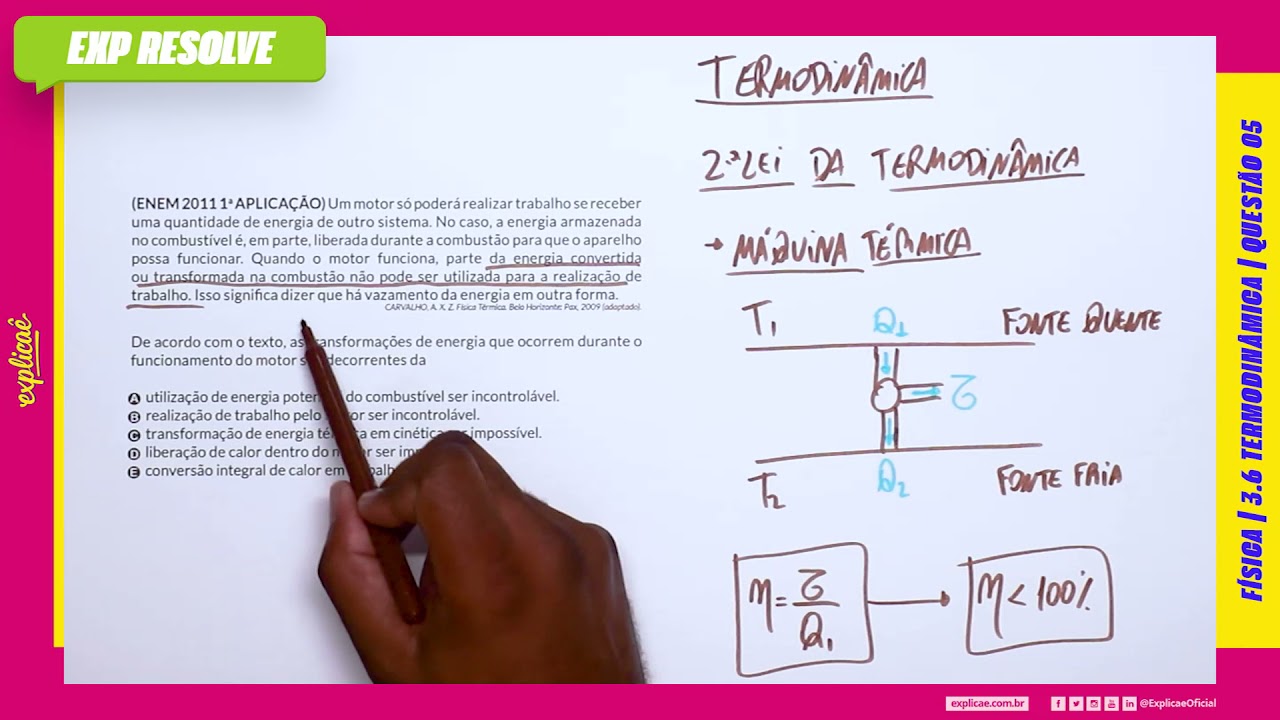 EXP RESOLVE
(ENEM 2011 1ª APLICAÇÃO) Um motor só poderá realizar trabalho se receber
uma quantidade de energia de outro sistema. No caso, a energia armazenada
no combustível é, em parte, liberada durante a combustão para que o aparelho
possa funcionar. Quando o motor funciona, parte da energia convertida
ou transformada na combustão não pode ser utilizada para a realização de
trabalho. Isso significa dizer que há vazamento da energia em outra forma.
CARVALHO, A. X. Z. Física Térmica. Belo Horizonte: Pax, 2009 (adaptado).
De acordo com o texto, as transformações de energia que ocorrem durante o
funcionamento do motor decorrentes da
A utilização de energia do combustível ser incontrolável.
B realização de trabalho pelo ser incontrolável.
C transformação de energia em cinética impossível.
D liberação de calor dentro do
E conversão integral de calor em
TERMODINÂMICA
2ª LEI DA TERMODINÂMICA
→ MÁQUINA TÉRMICA
T1 Q1 FONTE QUENTE
τ
T2 Q2 FONTE FRIA
η = τ / Q1 → η < 100%
explicaê
FÍSICA | 3.6 TERMODINÂMICA | QUESTÃO 05
explicae.com.br @ExplicaeOficial